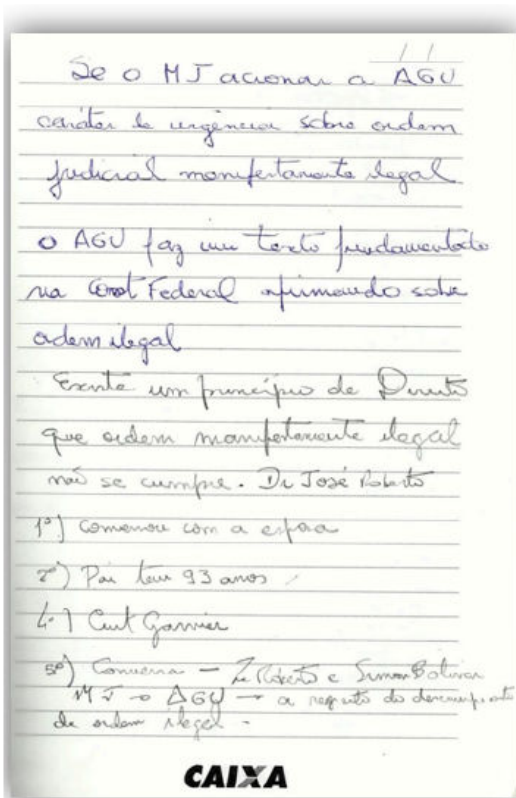 Se o MJ acionar a AGU
caráter de urgência sobre ordem
judicial manifestamente ilegal
o AGU faz um texto fundamentado
na Const Federal afirmando sobre
ordem ilegal
Existe um princípio de Direito
que ordem manifestamente ilegal
não se cumpre. Dr José Roberto
1º) Comenou com a
2º) Pai tem 93 anos
4.) Curt
5º) Conversa – Zé Roberto e Simon Bolivar
MJ → AGU → a respeito do
de ordem ilegal.
CAIXA